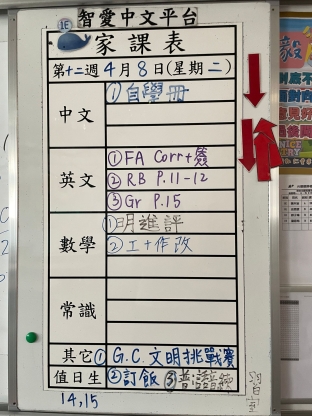 智愛中文平台
1E
家課表
第十二週4月8日(星期二)
中文 ①自學冊
英文 ①FA Corr+簽
②RB P.11-12
③Gr P.15
數學 ①明進評
②工+作改
常識
其它 ①G.C.文明挑戰賽
值日生 ②訂飯
14,15